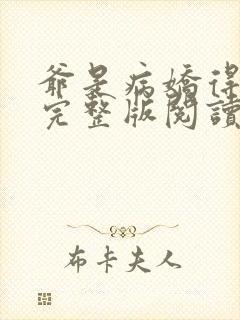 爺是病嬌得
完整版閱讀
布卡夫人